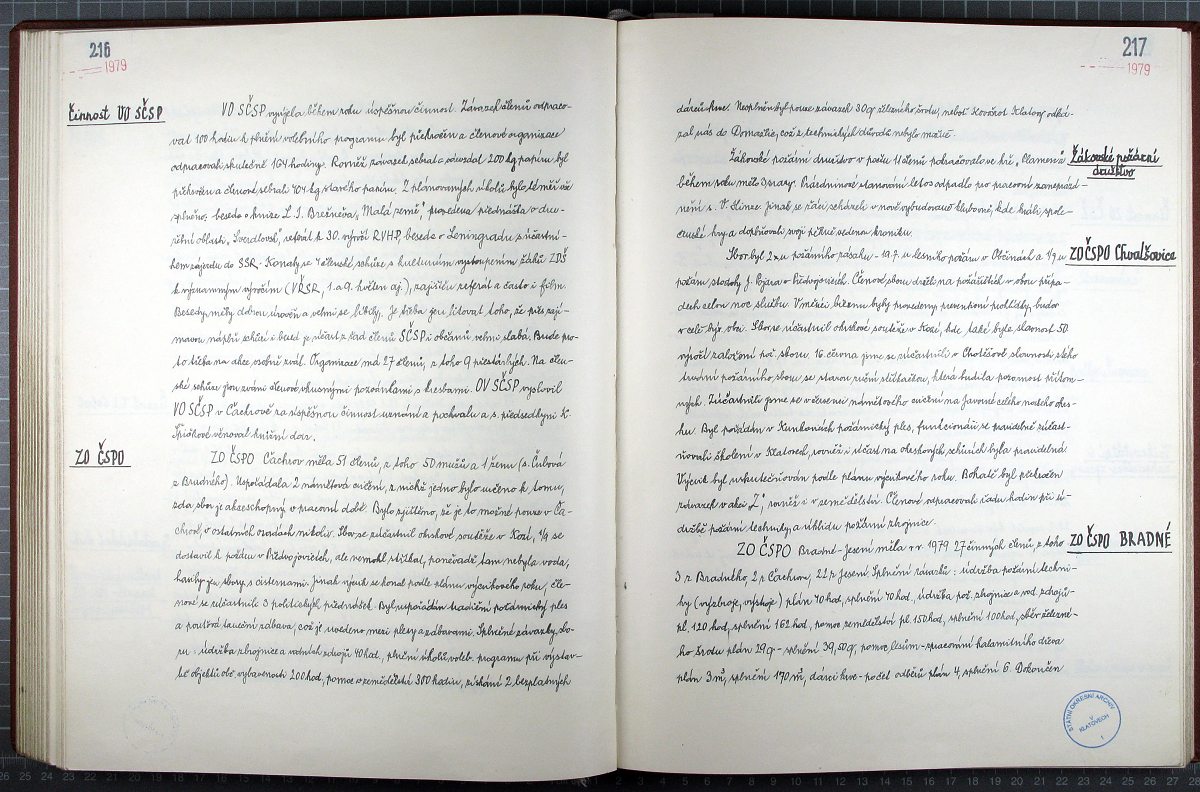 216
1979
Činnost VO SČSP
VO SČSP vyvíjela během roku úspěšnou činnost. Závazek členů odpraco-
vat 100 hodin k plnění volebního programu byl překročen a členové organizace
odpracovali skutečně 164 hodiny. Rovněž závazek sebrat a odevzdat 200 kg papíru byl
překročen a členové sebrali 404 kg starého papíru. Z plánovaných úkolů bylo téměř vše
splněno: beseda o knize L. I. Brežněva „Malá země“, provedena přednáška o dru-
žební oblasti „Sverdlovsk“, referát k 30. výročí RVHP, beseda o Leningradu s účastní-
kem zájezdu do SSR. Konaly se 4 členské schůze s kulturním vystoupením žáků ZDŠ
k významným výročím (VŘSR, 1. a 9. květen aj.), zajištěn referát a často i film.
Besedy měly dobrou úroveň a velmi se líbily. Je třeba jen litovat toho, že přes zají-
mavou náplň schůzí i besed je účast z řad členů SČSP i občanů velmi slabá. Bude pro-
to třeba na akce osobně zvát. Organizace má 27 členů, z toho 9 přestárlých. Na člen-
ské schůze jsou zváni členové vkusnými pozvánkami s kresbami. OV SČSP vyslovil
VO SČSP v Čachrově za úspěšnou činnost uznání a pochvalu a s. předsedkyni K.
věnoval knižní dar.
ZO ČSPO
ZO ČSPO Čachrov měla 51 členů, z toho 50 mužů a 1 ženu (s. Čubová
z Bradného). Uspořádala 2 námětová cvičení, z nichž jedno bylo určeno k tomu,
zda sbor je akceschopný v pracovní době. Bylo zjištěno, že je to možné pouze v Ča-
chrově, v ostatních osadách nikoliv. Sbor se zúčastnil okrskové soutěže v Kozí, 1/9 se
dostavil k požáru v Předvojovicích, ale nemohl stříkat, poněvadž tam nebyla voda,
hasily jen sbory s cisternami. Jinak výcvik se konal podle plánu výcvikového roku, čle-
nové se zúčastnili 3 politických přednášek. Byl uspořádán tradiční požárnický ples
a pouťová taneční zábava, což je uvedeno mezi plesy a zábavami. Splněné závazky sbo-
ru: údržba zbrojnice a vodních zdrojů 40 hod., plnění úkolů voleb. programu při výstav-
bě objektů obč. vybavenosti 200 hod, pomoc v zemědělství 300 hodin, získání 2 bezplatných
217
1979
dárců krve. Nesplněn byl pouze závazek 30 q železného šrotu, neboť Kovošrot Klatovy odká-
zal nás do Domažlic, což z technických důvodů nebylo možné.
Žákovské požární družstvo
Žákovské požární družstvo v počtu 11 členů pokračovalo ve hře „Plamen“ a
během roku mělo 3 srazy. Prázdninové stanování letos odpadlo pro pracovní zaneprázd-
nění s. V. Jinak se žáci scházeli v nově vybudované klubovně, kde hráli spole-
čenské hry a doplňovali svoji pěkně vedenou kroniku.
ZO ČSPO Chvalšovice
Sbor byl 2x u požárního zásahu - 19.7. u lesního požáru v Občinách a 1/9 u
požáru stodoly J. Pojara v Předvojovicích. Členové sboru drželi na požářištích v obou přípa-
dech celou noc službu. V měsíci březnu byly provedeny preventivní prohlídky budov
v celé býv. obci. Sbor se zúčastnil okrskové soutěže v Kozí, kde také byla slavnost 50.
výročí založení pož. sboru. 16. června jsme se zúčastnili v Chotěšově slavnosti stého
trvání požárního sboru se starou ruční stříkačkou, která budila pozornost přítom-
ných. Zúčastnili jsme se v červenci námětového cvičení na Javorné celého našeho okrs-
ku. Byl pořádán v Kunkovicích požárnický ples, funkcionáři se pravidelně zúčast-
ňovali školení v Klatovech, rovněž i účast na okrskových schůzích byla pravidelná.
Výcvik byl uskutečňován podle plánu výcvikového roku. Bohatě byl překročen
závazek v akci „Z“, rovněž i v zemědělství. Členové odpracovali řadu hodin při ú-
držbě požární techniky a vzhledu požární zbrojnice.
ZO ČSPO BRADNÉ
ZO ČSPO Bradné - Jesení měla v r. 1979 27 činných členů, z toho
3 z Bradného, 2 z Čachrova, 22 z Jesení. Splnění závazků: údržba požární techni-
ky (výzbroje, výstroje) plán 40 hod, splnění 40 hod, údržba pož. zbrojnice a vod. zdrojů-
pl. 120 hod, splnění 162 hod, pomoc zemědělství pl. 150 hod, splnění 100 hod, sběr železné-
ho šrotu plán 29 q - splnění 39,50 q, pomoc lesům - zpracování kalamitního dřeva
plán 3 m³, splnění 170 m³, dárci krve - počet odběrů plán 4, splnění 6. Dokončen
STÁTNÍ OKRESNÍ ARCHIV
V
KLATOVECH
1